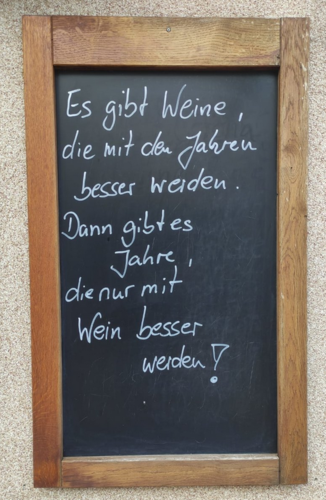 Es gibt Weine,
die mit den Jahren
besser werden.
Dann gibt es
Jahre,
die nur mit
Wein besser
werden!